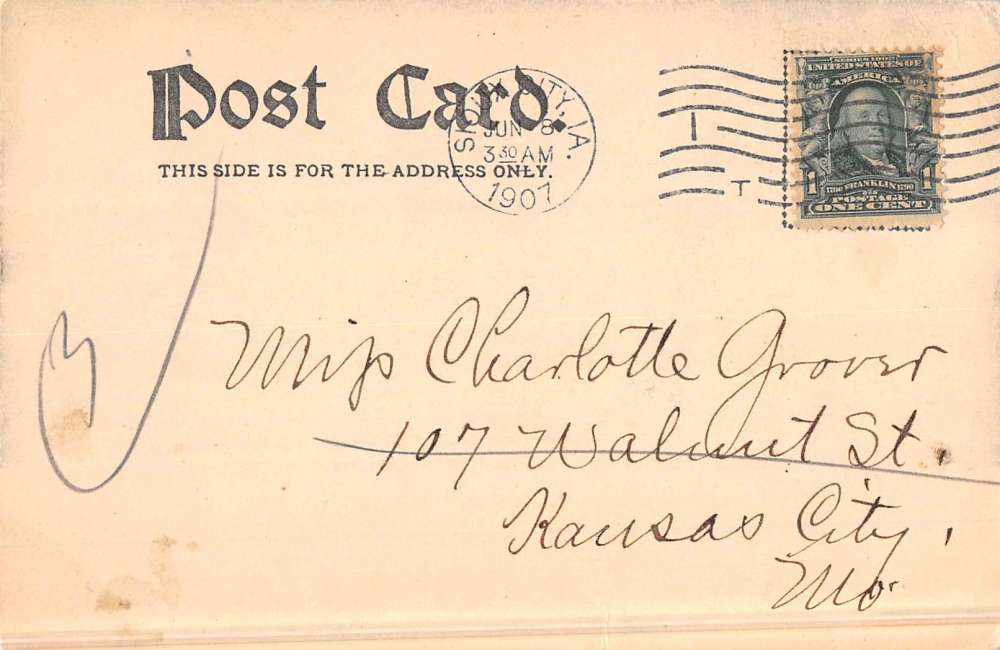 Post Card.
THIS SIDE IS FOR THE ADDRESS ONLY.
SIOUX CITY, IA.
JUN 8
3 30 AM
1907
I
T
SERIES 1902
UNITED STATES OF
AMERICA
1 1
1706 FRANKLIN 1790
POSTAGE
ONE CENT
3
Miss Charlotte Grover
107 Walnut St.
Kansas City,
Mo.